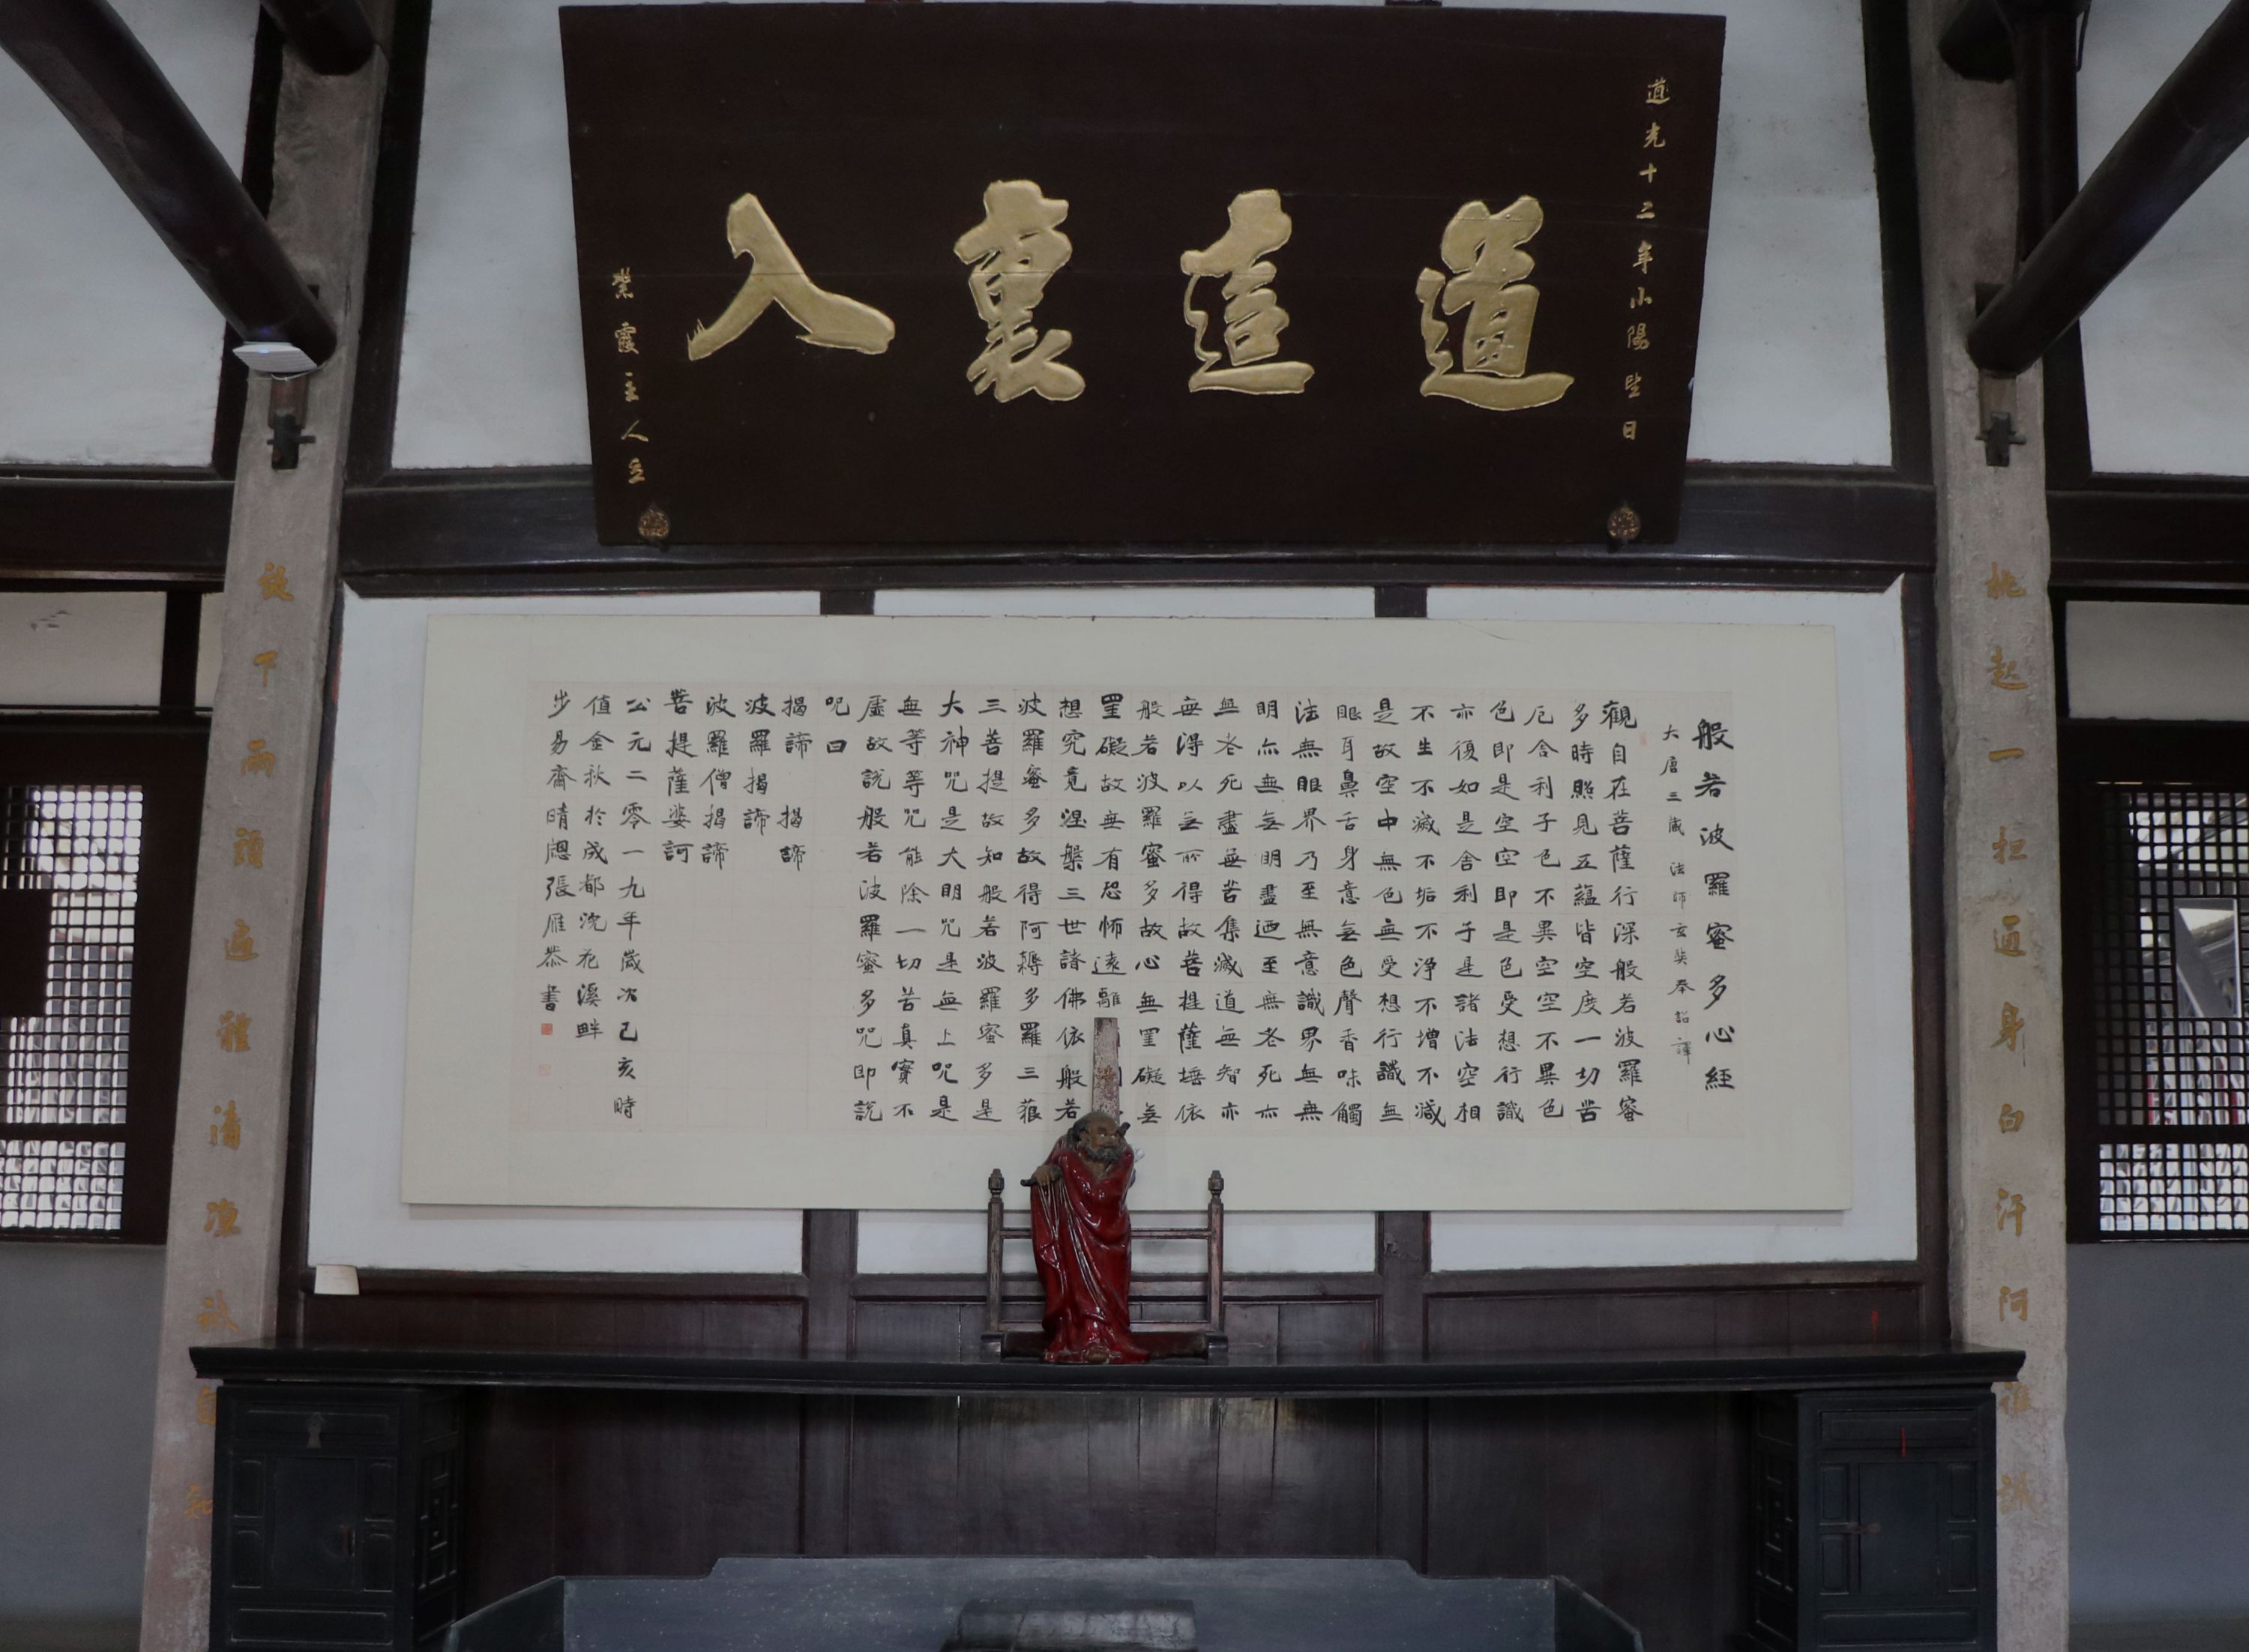 道光十二年小陽日
道這裏入
紫霞主人立
挑起一担通身白汗阿誰識
般若波羅蜜多心經
大唐三藏法師玄奘奉詔譯
觀自在菩薩行深般若波羅蜜
多時照見五蘊皆空度一切苦
厄舍利子色不異空空不異色
色即是空空即是色受想行識
亦復如是舍利子是諸法空相
不生不滅不垢不浄不增不減
是故空中無色無受想行識無
眼耳鼻舌身意無色聲香味觸
法無眼界乃至無意識界無無
明亦無無明盡迺至無老死亦
無老死盡無苦集滅道無智亦
無得以無所得故菩提薩埵依
般若波羅蜜多故心無罣礙無
罣礙故無有恐怖遠離
想究竟涅槃三世諸佛依般若
波羅蜜多故得阿耨多羅三藐
三菩提故知般若波羅蜜多是
大神咒是大明咒是無上咒是
無等等咒能除一切苦真實不
虛故說般若波羅蜜多咒即說
咒曰
揭諦 揭諦
波羅揭諦
波羅僧揭諦
菩提薩婆訶
公元二零一九年歲次己亥時
值金秋於成都浣花溪畔
步易齋晴牕張雁恭書
放下兩頭遍體清涼秖自知